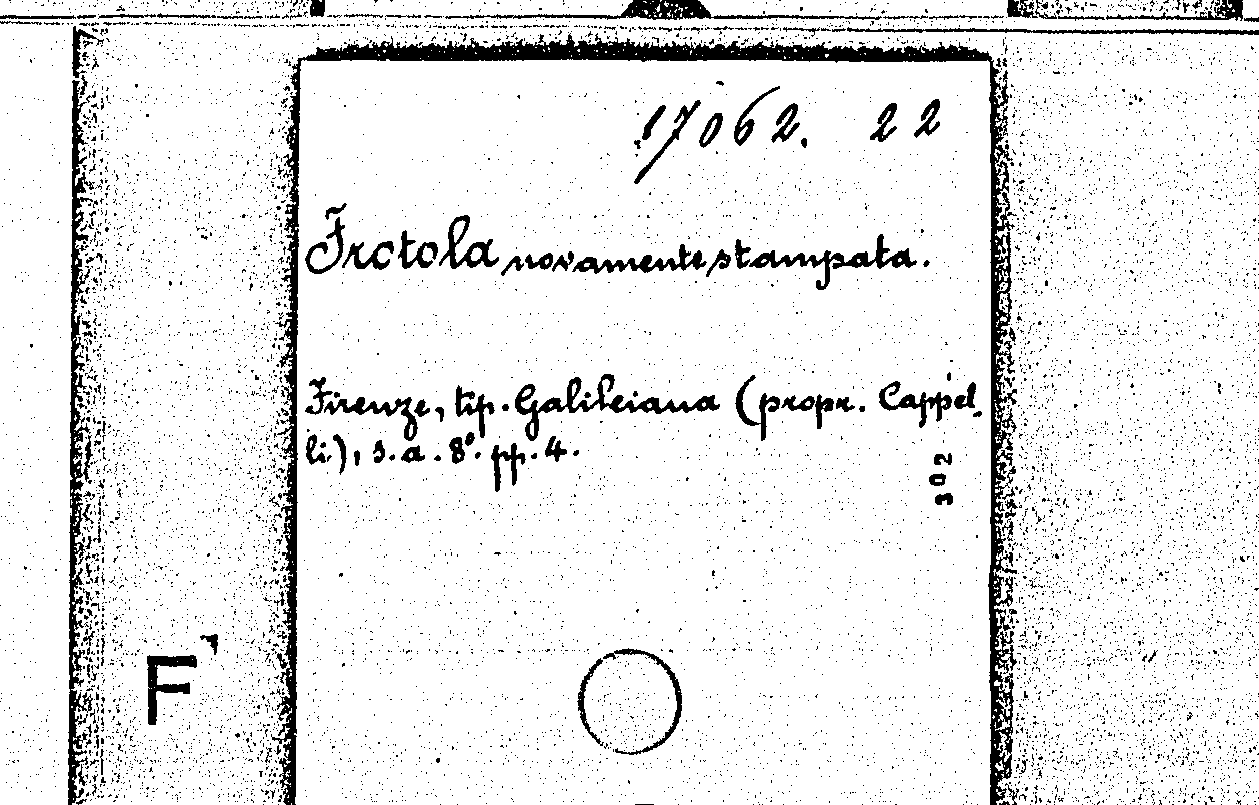 17062. 22
Frotola novamente stampata.
Firenze, tip. Galileiana (propr. Cappel
li), s. a. 8°. pp. 4.
302
F